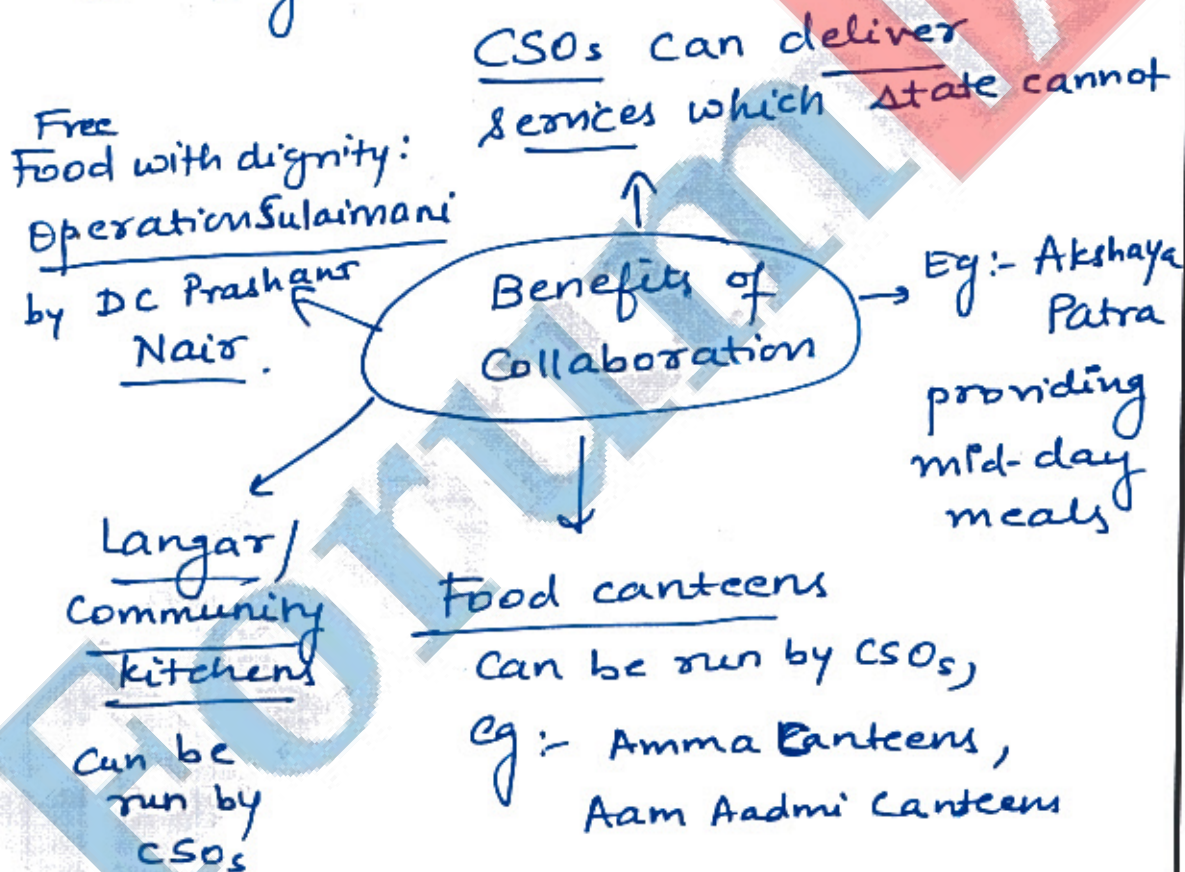 CSOs can deliver
services which state cannot
Free
Food with dignity:
Operation Sulaimani
by DC Prashant
Nair.
Benefits of
Collaboration
Eg:- Akshaya
Patra
providing
mid-day
meals
Langar/
Community
kitchens
Can be
run by
CSOs
Food canteens
Can be run by CSOs,
eg:- Amma Canteens,
Aam Aadmi Canteens
Forum